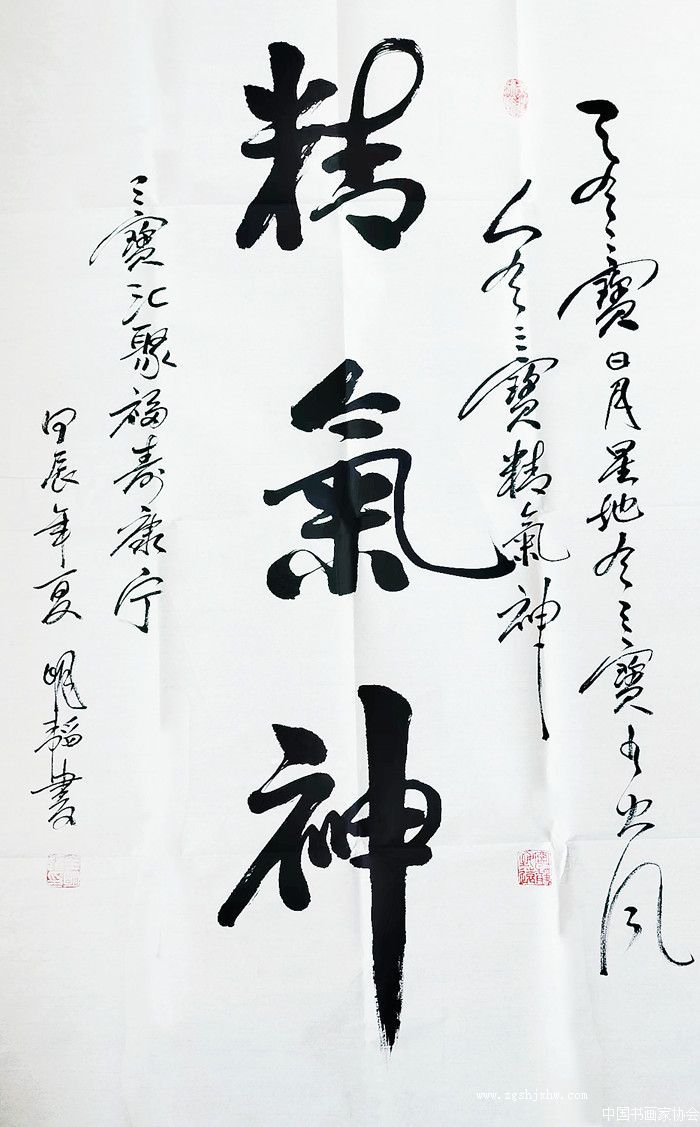 天有三寶日月星地有三寶水火风
人有三寶精氣神
精氣神
三寶汇聚福寿康宁
甲辰年夏 明韜書
www.zgshjxhw.com
中国书画家协会